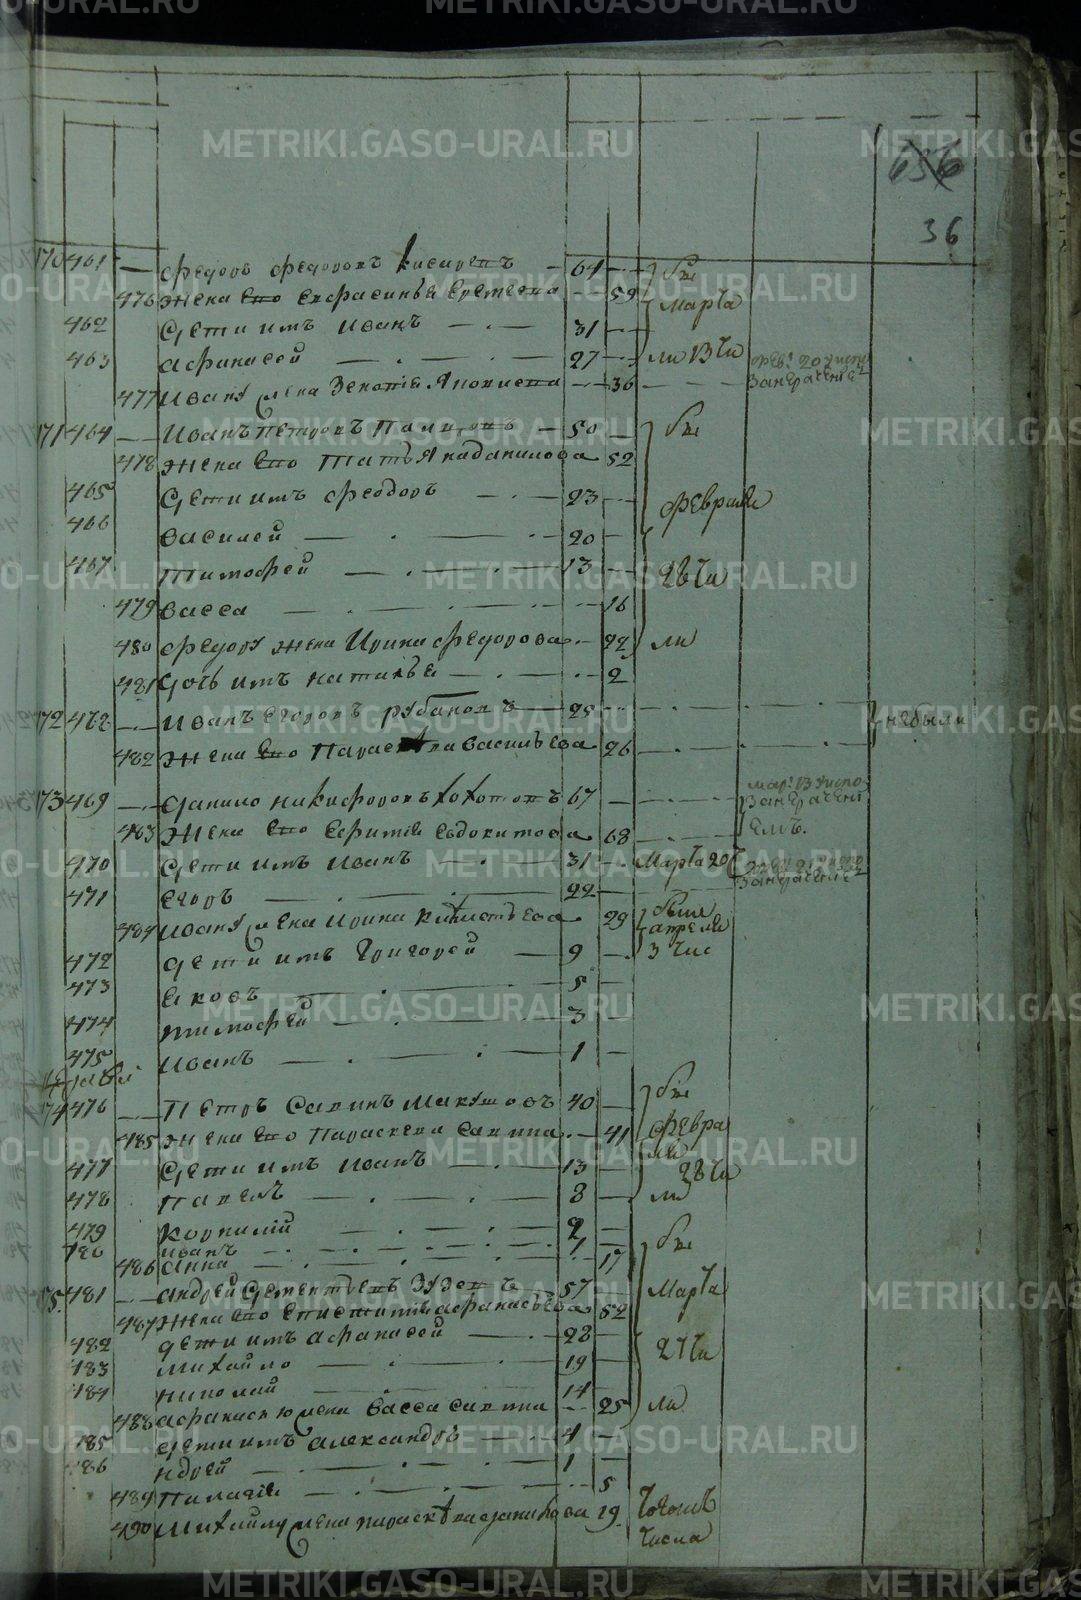 METRIKI.GASO-URAL.RU
656
36
170 461 — Федоръ Федоровъ — 64 — бы
476 жена Ево Евфросинья Еремеева — 59 Марта
462 Дети имъ Иванъ — 31 —
463 Афанасей — 27 — ли 13 чи фев: 20 числа
477 Ивану жена Зеновия — 36 — За нерачениемъ
171 464 — Иванъ Петровъ — 50 — бы
478 жена Ево Татьяна Данилова 52
465 Дети имъ Феодоръ — 23 — февраля
466 Василей — 20 —
467 Тимофей — 13 — 28 чи
479 Васса — 16
480 Федору жена Ирина Федорова — 22 ли
481 Дочь имъ Наталья — 2
172 468 — Иванъ Егоровъ Рубановъ — 25 — небыли
482 жена Ево Параскева Васильева 26 —
173 469 — Данило Никифоровъ Хохотовъ 67 — мар: 13 числа За нерачени
483 жена Ево Евдокимова 68 — емъ.
470 Дети имъ Иванъ — 31 — Марта 20
471 Егоръ — 22 — За нерачение
484 Ивану жена Ирина 29 были апреля
472 дети имъ Григорей — 9 — 3 чис
473 Яковъ — 5 —
474 Тимофей — 3 —
475 Иванъ — 1 —
174 476 — Петръ Савинъ Макушовъ 40 — бы
485 жена Ево Параскева Савина — 41 февра
ля
477 Дети имъ Иванъ — 13 — 28 чи
478 Павелъ — 8 — ли
479 Корнилий — 2 — бы
480 Иванъ — 1 —
486 Анна — 17
175. 481 — Андрей Дементьевъ — 57 — Марта
487 жена Ево Епистимия Афанасьева 52
482 дети имъ Афанасей — 28 — 27 чи
483 Михайло — 19 —
484 Николай — 14 —
488 Афанасью жена Васса Савина — 25 ли
485 дети имъ Александръ — 4 —
486 Ндрей — 1 —
489 Палагия — 5
490 Михайлу жена Параскева 19 тогожъ
числа